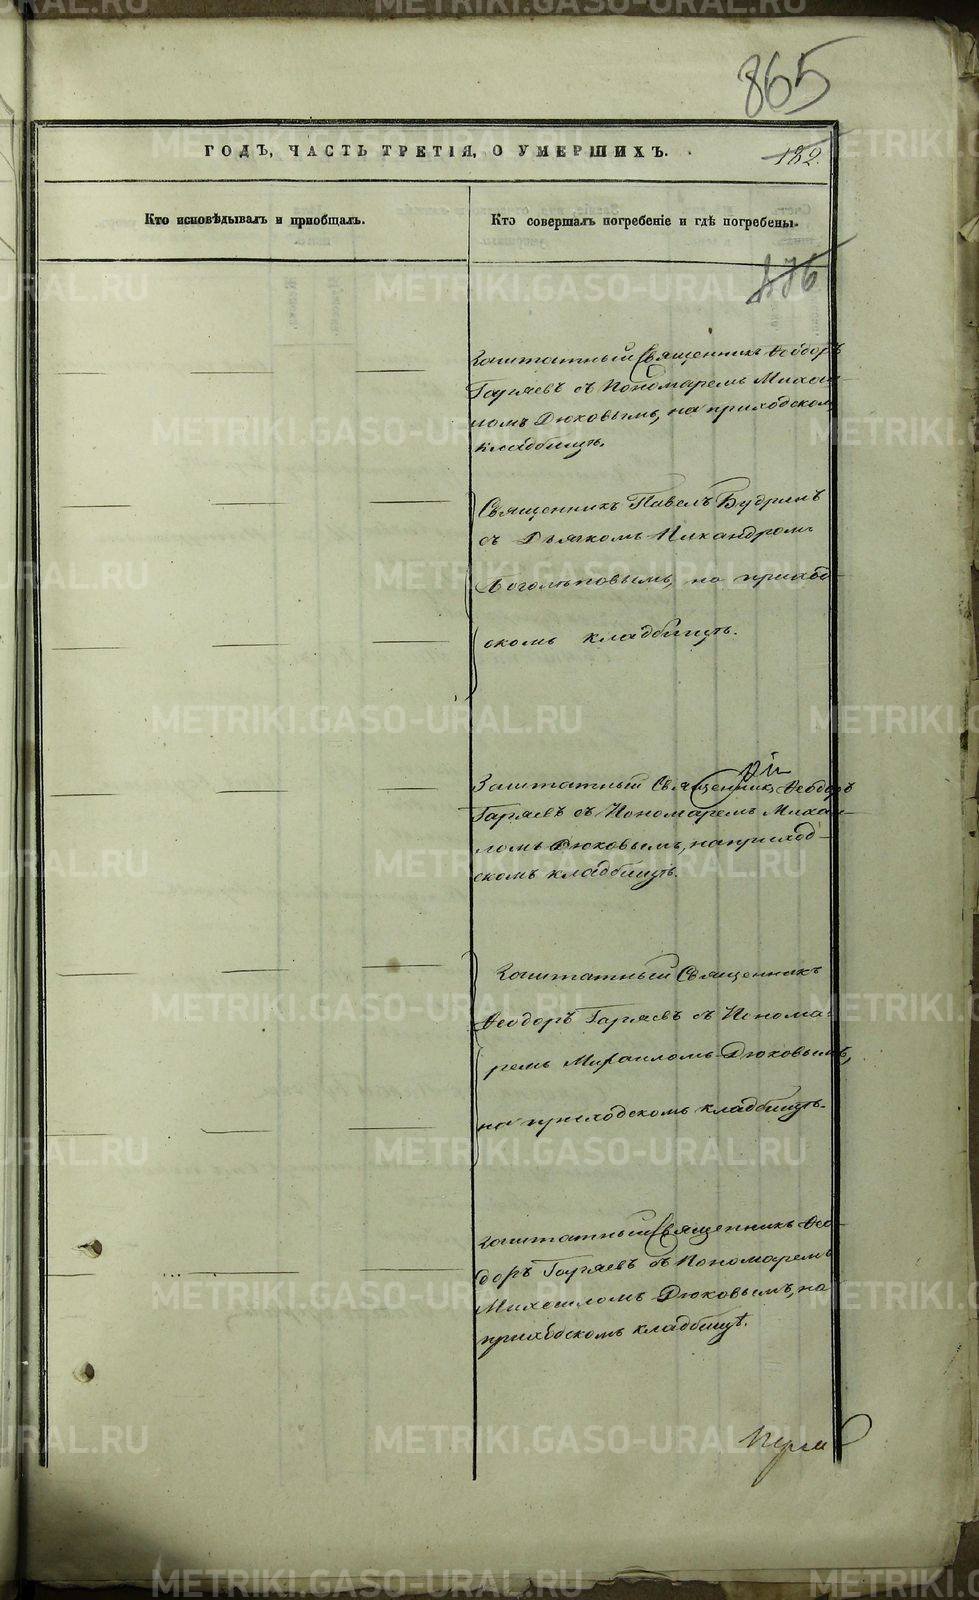 865
ГОДЪ, ЧАСТЬ ТРЕТІЯ, О УМЕРШИХЪ.
182.
Кто исповѣдывалъ и пріобщалъ.
Кто совершалъ погребеніе и гдѣ погребены.
476
Заштатный Священникъ Ѳеодоръ
Гаряевъ съ Пономаремъ Михаи-
ломъ Дюковымъ, на приходском
кладбищѣ.
Священникъ Павелъ Будринъ
съ Дьячкомъ Никандромъ
Боголѣповымъ, на приход-
скомъ кладбищѣ.
Заштатный Священникъ Ѳеодоръ
Гаряевъ съ Пономаремъ Михаи-
ломъ Дюковымъ, на приход-
скомъ кладбищѣ.
Заштатный Священникъ
Ѳеодоръ Гаряевъ съ Понома-
ремъ Михаиломъ Дюковымъ,
на приходскомъ кладбищѣ.
Заштатный Священникъ Ѳео-
доръ Гаряевъ съ Пономаремъ
Михаиломъ Дюковымъ, на
приходскомъ кладбищѣ.
METRIKI.GASO-URAL.RU